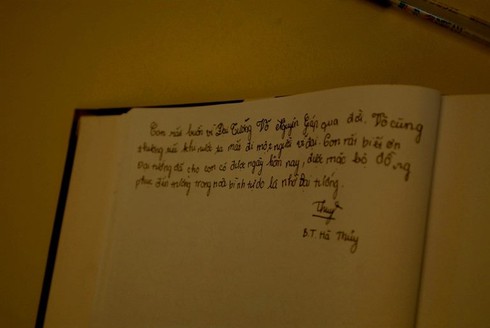 Con rất buồn vì Đại Tướng Võ Nguyên Giáp qua đời. Vô cùng
thương tiếc khi nước ta mất đi một người vĩ đại. Con rất biết ơn
Đại tướng đã cho con có được ngày hôm nay, được mặc bộ đồng
phục đến trường trong hoà bình tự do là nhờ Đại tướng.
Thuỷ
B.T. Hà Thủy